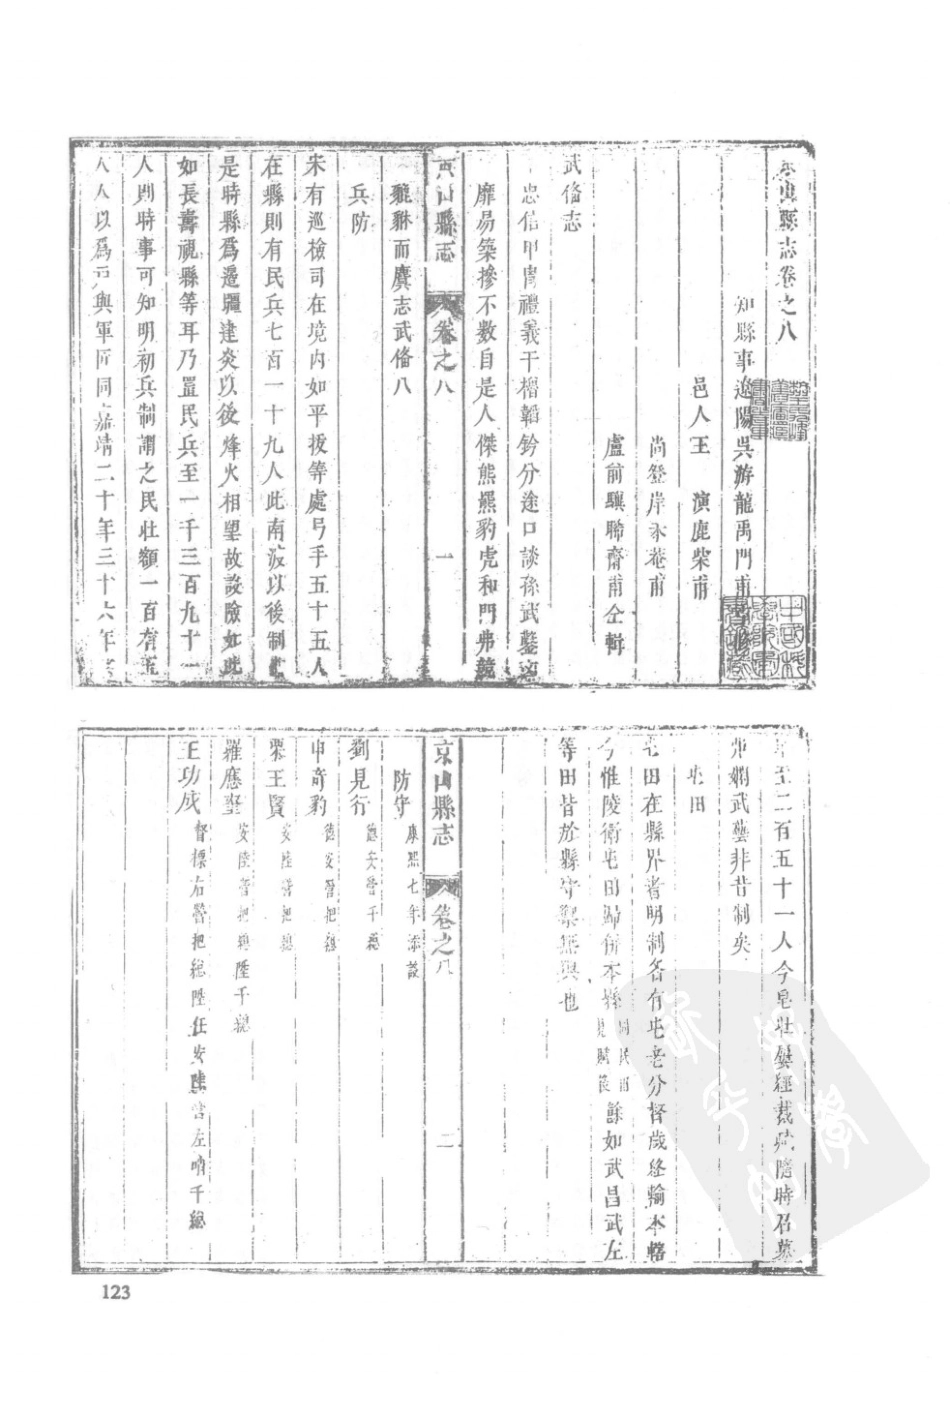 京山縣志卷之八
知縣事遼陽吳游龍禹門甫
邑人王 演鹿柴甫
尚登岸未菴甫
盧前驥聯齋甫仝輯
武俻志
忠信甲胄禮義干櫓韜鈐分途口談孫武鑿
靡易築摻不數自是人傑熊羆豹虎和門弗競
貔貅而賡志武俻八
兵防
宋有巡檢司在境內如平拔等處弓手五十五人
在縣則有民兵七百一十九人此南渡以後制也
是時縣爲邊疆建炎以後烽火相望故設險如此
如長壽視縣等耳乃置民兵至一千三百九十一
人則時事可知明初兵制謂之民壯額一百
人人以爲 與軍 同嘉靖二十年三十六年
京山縣志
卷之八
一
至二百五十一人今皂壯屢經裁 隨時召募
嫻武藝非昔制矣
屯田
屯田在縣界者明制各有屯老分督歲終輸本
今惟陵衛屯田歸併本縣 賦後 餘如武昌武左
等田皆於縣守禦無與也
京山縣志
卷之八
二
防守 康熙七年添設
劉見行 德安營千總
申奇豹 德安營把總
栗王賢 安陸營把總
羅應聖 安陸營把總陞千總
王功成 督標右營把總陞任安陸營左哨千總
123